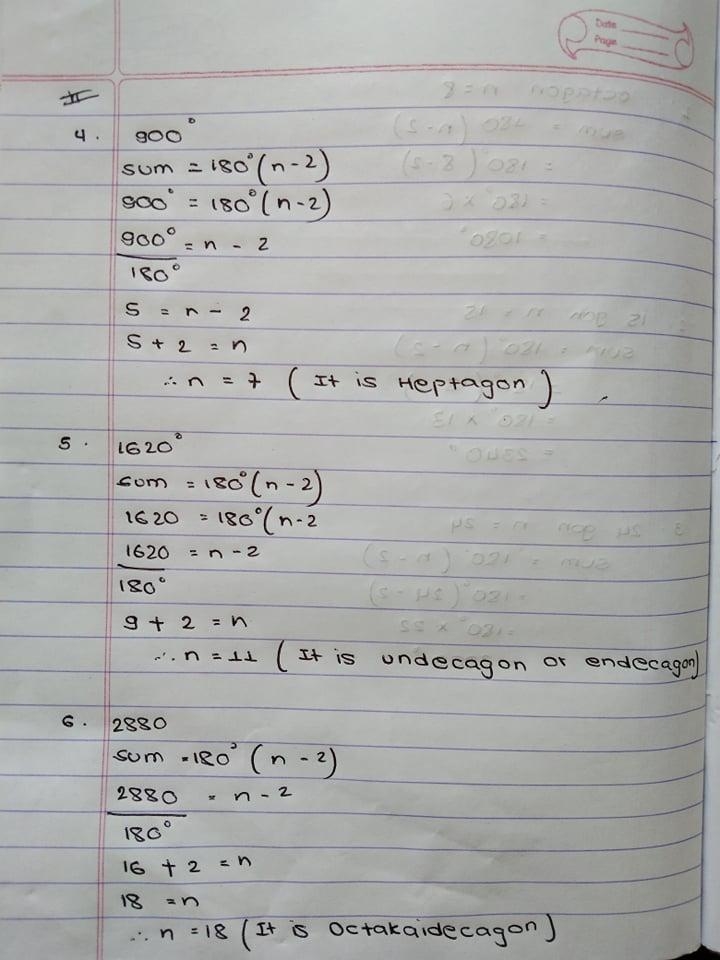 Date
Page
II
4. 900°
sum = 180°(n-2)
900° = 180°(n-2)
900° = n - 2
180°
5 = n - 2
5 + 2 = n
∴ n = 7 ( It is Heptagon )
5. 1620°
sum = 180°(n-2)
1620 = 180°(n-2
1620 = n-2
180°
9 + 2 = n
∴ n = 11 ( It is undecagon or endecagon)
6. 2880
sum = 180° (n - 2)
2880 = n - 2
180°
16 + 2 = n
18 = n
∴ n = 18 (It is Octakaidecagon)